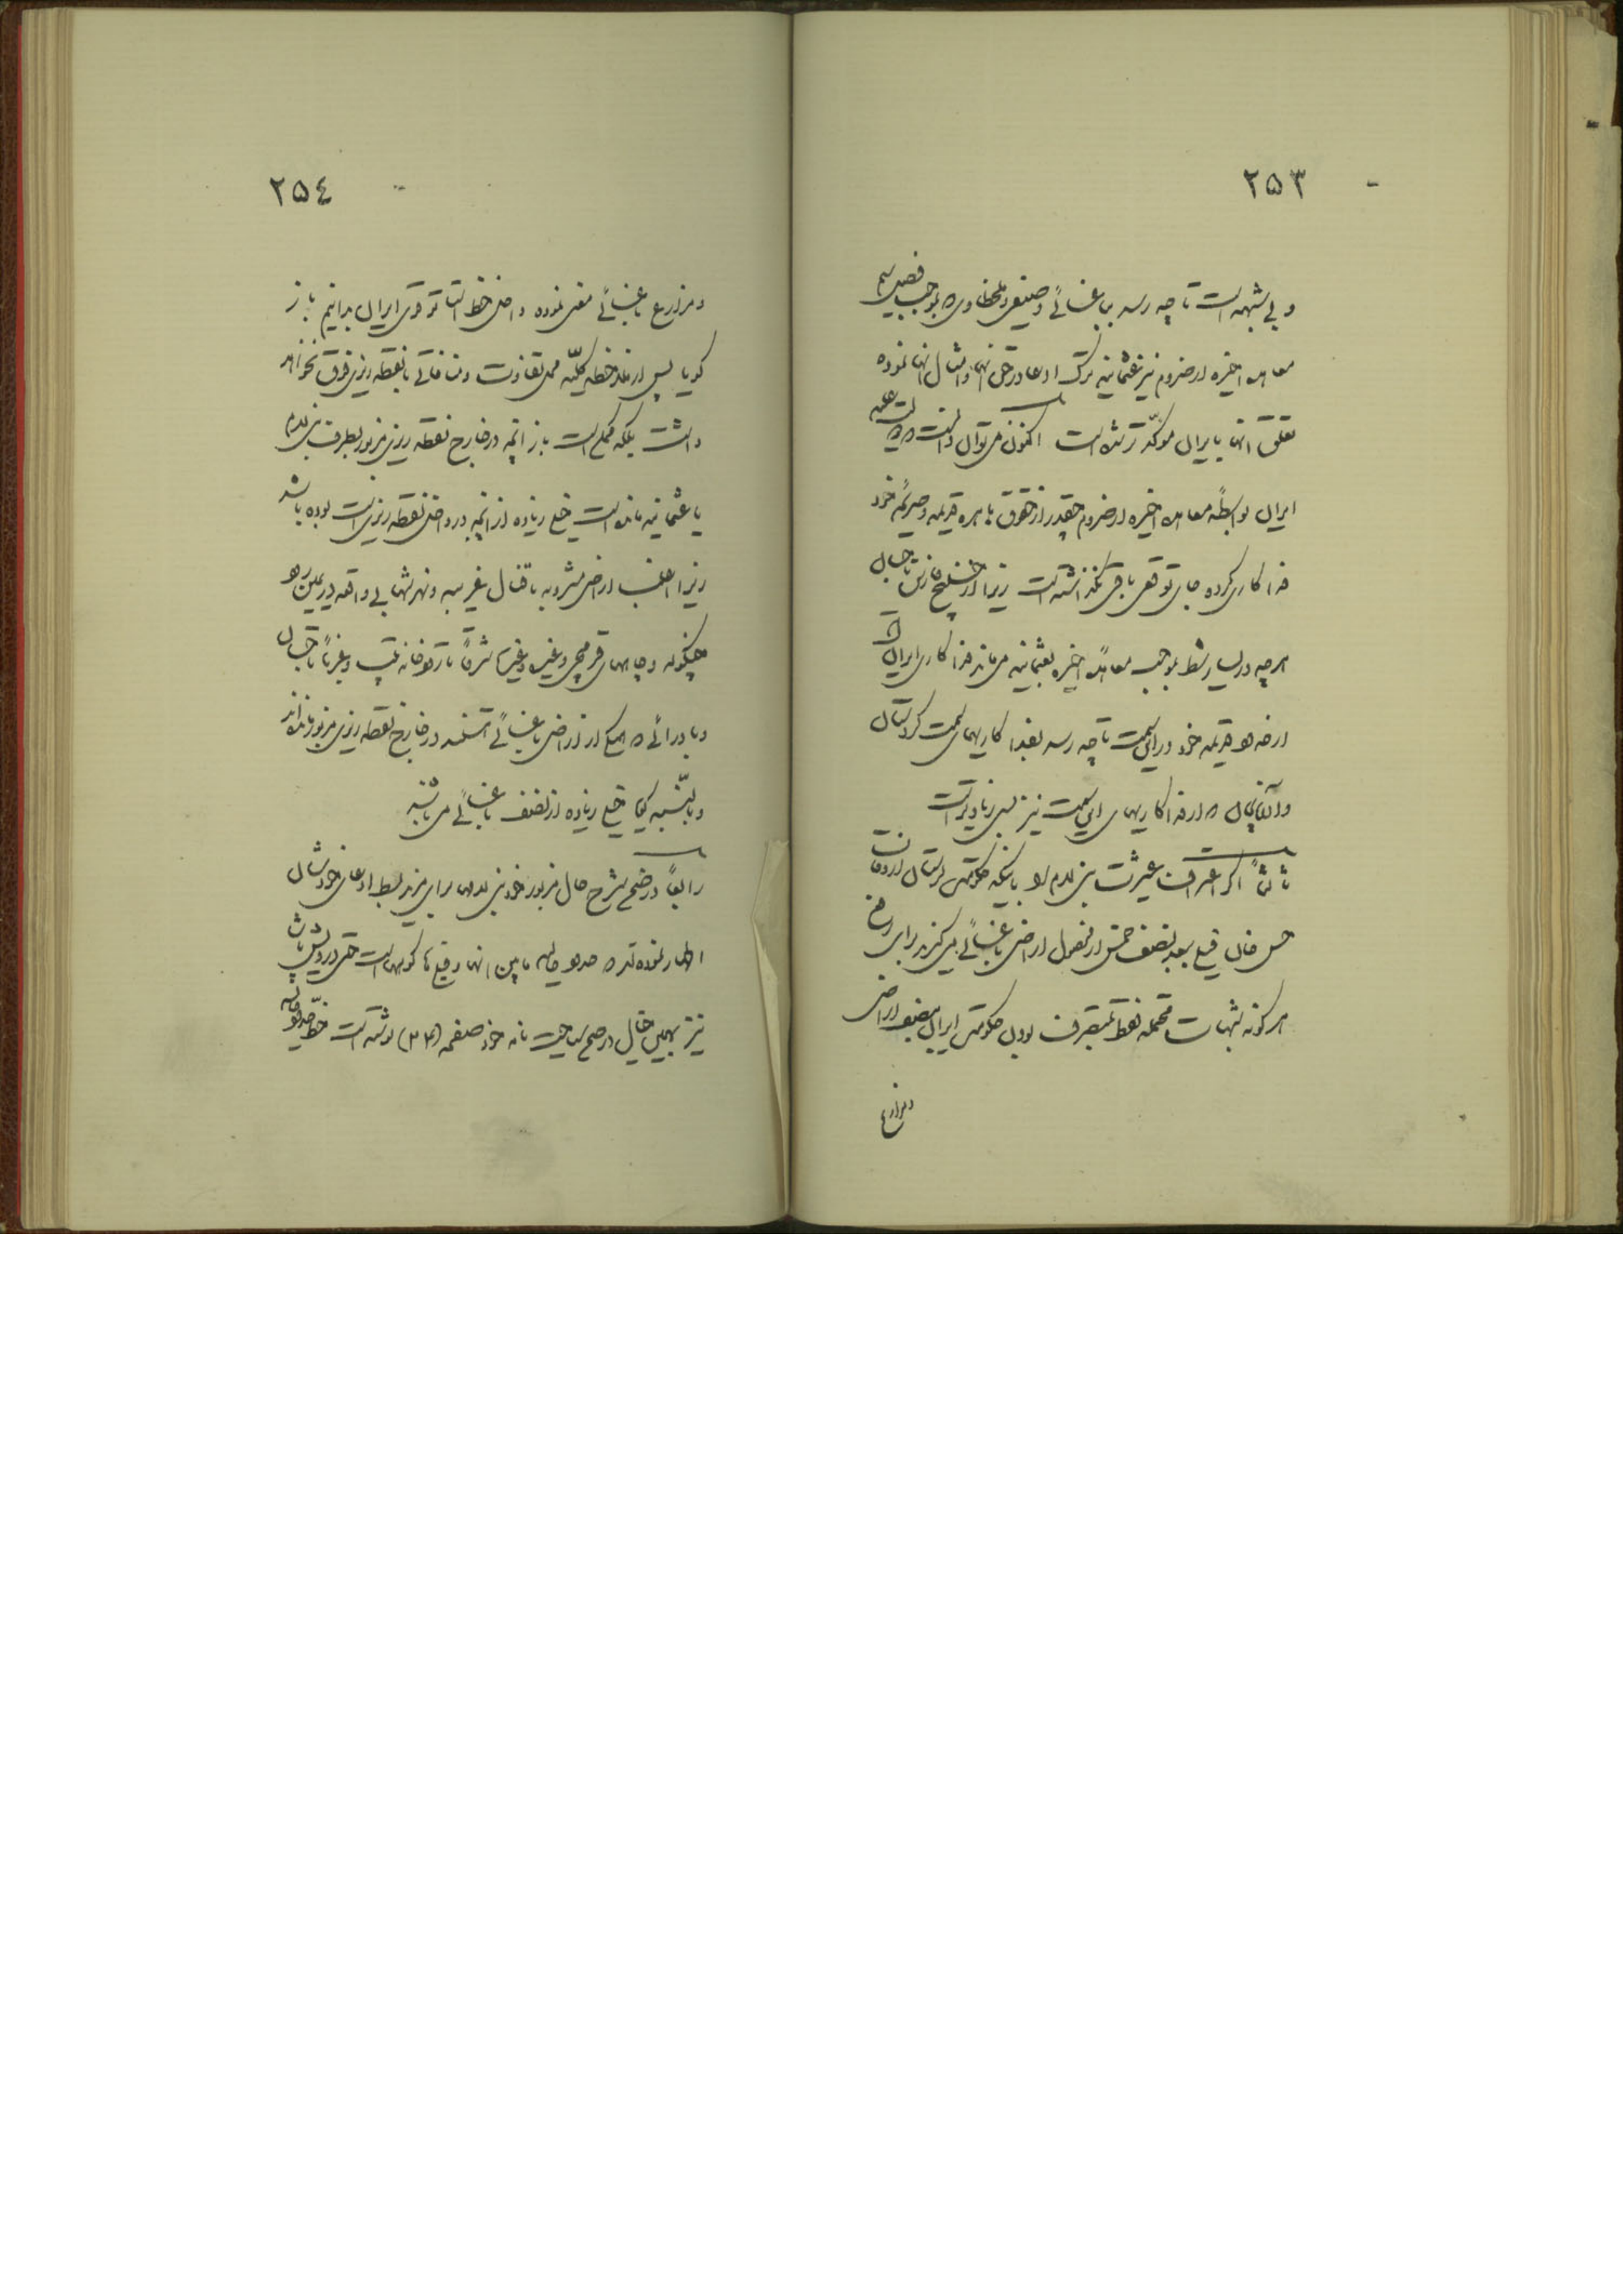 ۲۵۳
و بی شبهه است تا چه رسد بباغسائی و صیفی و ملخطاوی که بموجب فصل سیم
معاهده اخیره ارضروم نیز عثمانیه ترک ادعا در حق آنها و امثال آنها نموده
تعلق آنها بایران مؤکدتر شده است اکنون می توان دانست که دولت علیه
ایران بواسطهٔ معاهده اخیره ارضروم چقدر از حقوق باهره قدیمه و صریحهٔ خود
فداکاری کرده جای توقعی باقی نگذاشته است زیرا از خلیج فارس تا جبال
هر چه در یسار شط بموجب معاهدهٔ اخیره بعثمانیه می ماند فداکاری ایران است
از حدود قدیمه خود در این سمت تا چه رسد بفداکاریهای سمت کردستان
و آذربایجان که از فداکاریهای این سمت نیز بس زیادتر است
ثالثاً اگر اعتراف عشیرت بنی لام را باینکه حکومتی لرستان از زمان
حسن خان فیلی بعد نصف خمس از محصول اراضی باغسائی میگیرند برای رفع
هر گونه شبهات محتمله فقط بتصرف بودن حکومتی ایران بنصف اراضی
و مزارع
۲۵٤
و مزارع باغسائی معنی نموده داخل خط استاتوقوی ایران بدانیم باز
گویا پس از ملاحظه کلیّه محل تفاوت و منافاتی با نقطه ریزی فرق نخواهد
داشت بلکه محل است باز آنچه در خارج نقطه ریزی مزبور بطرف بنی لام
یا عثمانیه مانده است خیلی زیاده از آنچه در داخل نقطه ریزیست بوده باشد
زیرا اغلب اراضی مشروبه با قنال غربیه و نهر شهابی واقعه در یمین رود
چنگوله و چاههای قرمچی و غیره و غیره شرقاً تا تلوخانه تپ و غرباً تا جبال
و بادرائی که همگی از اراضی باغسائی هستند در خارج نقطه ریزی مزبور مانده اند
و بالنسبه یکجا خیلی زیاده از نصف باغسائی می باشند
رابعاً در ضمن شرح حال مزبور خود بنی لامها برای مزید بسط ادعای خودشان
اظهار نموده اند که حدود فاصله مابین آنها و فیلی ها کوهها است حتی درویش پاشا
نیز بهمین خیال در ضمن سیاحت نامه خود صفحه (۲۳) نوشته است خط حدود فاصله